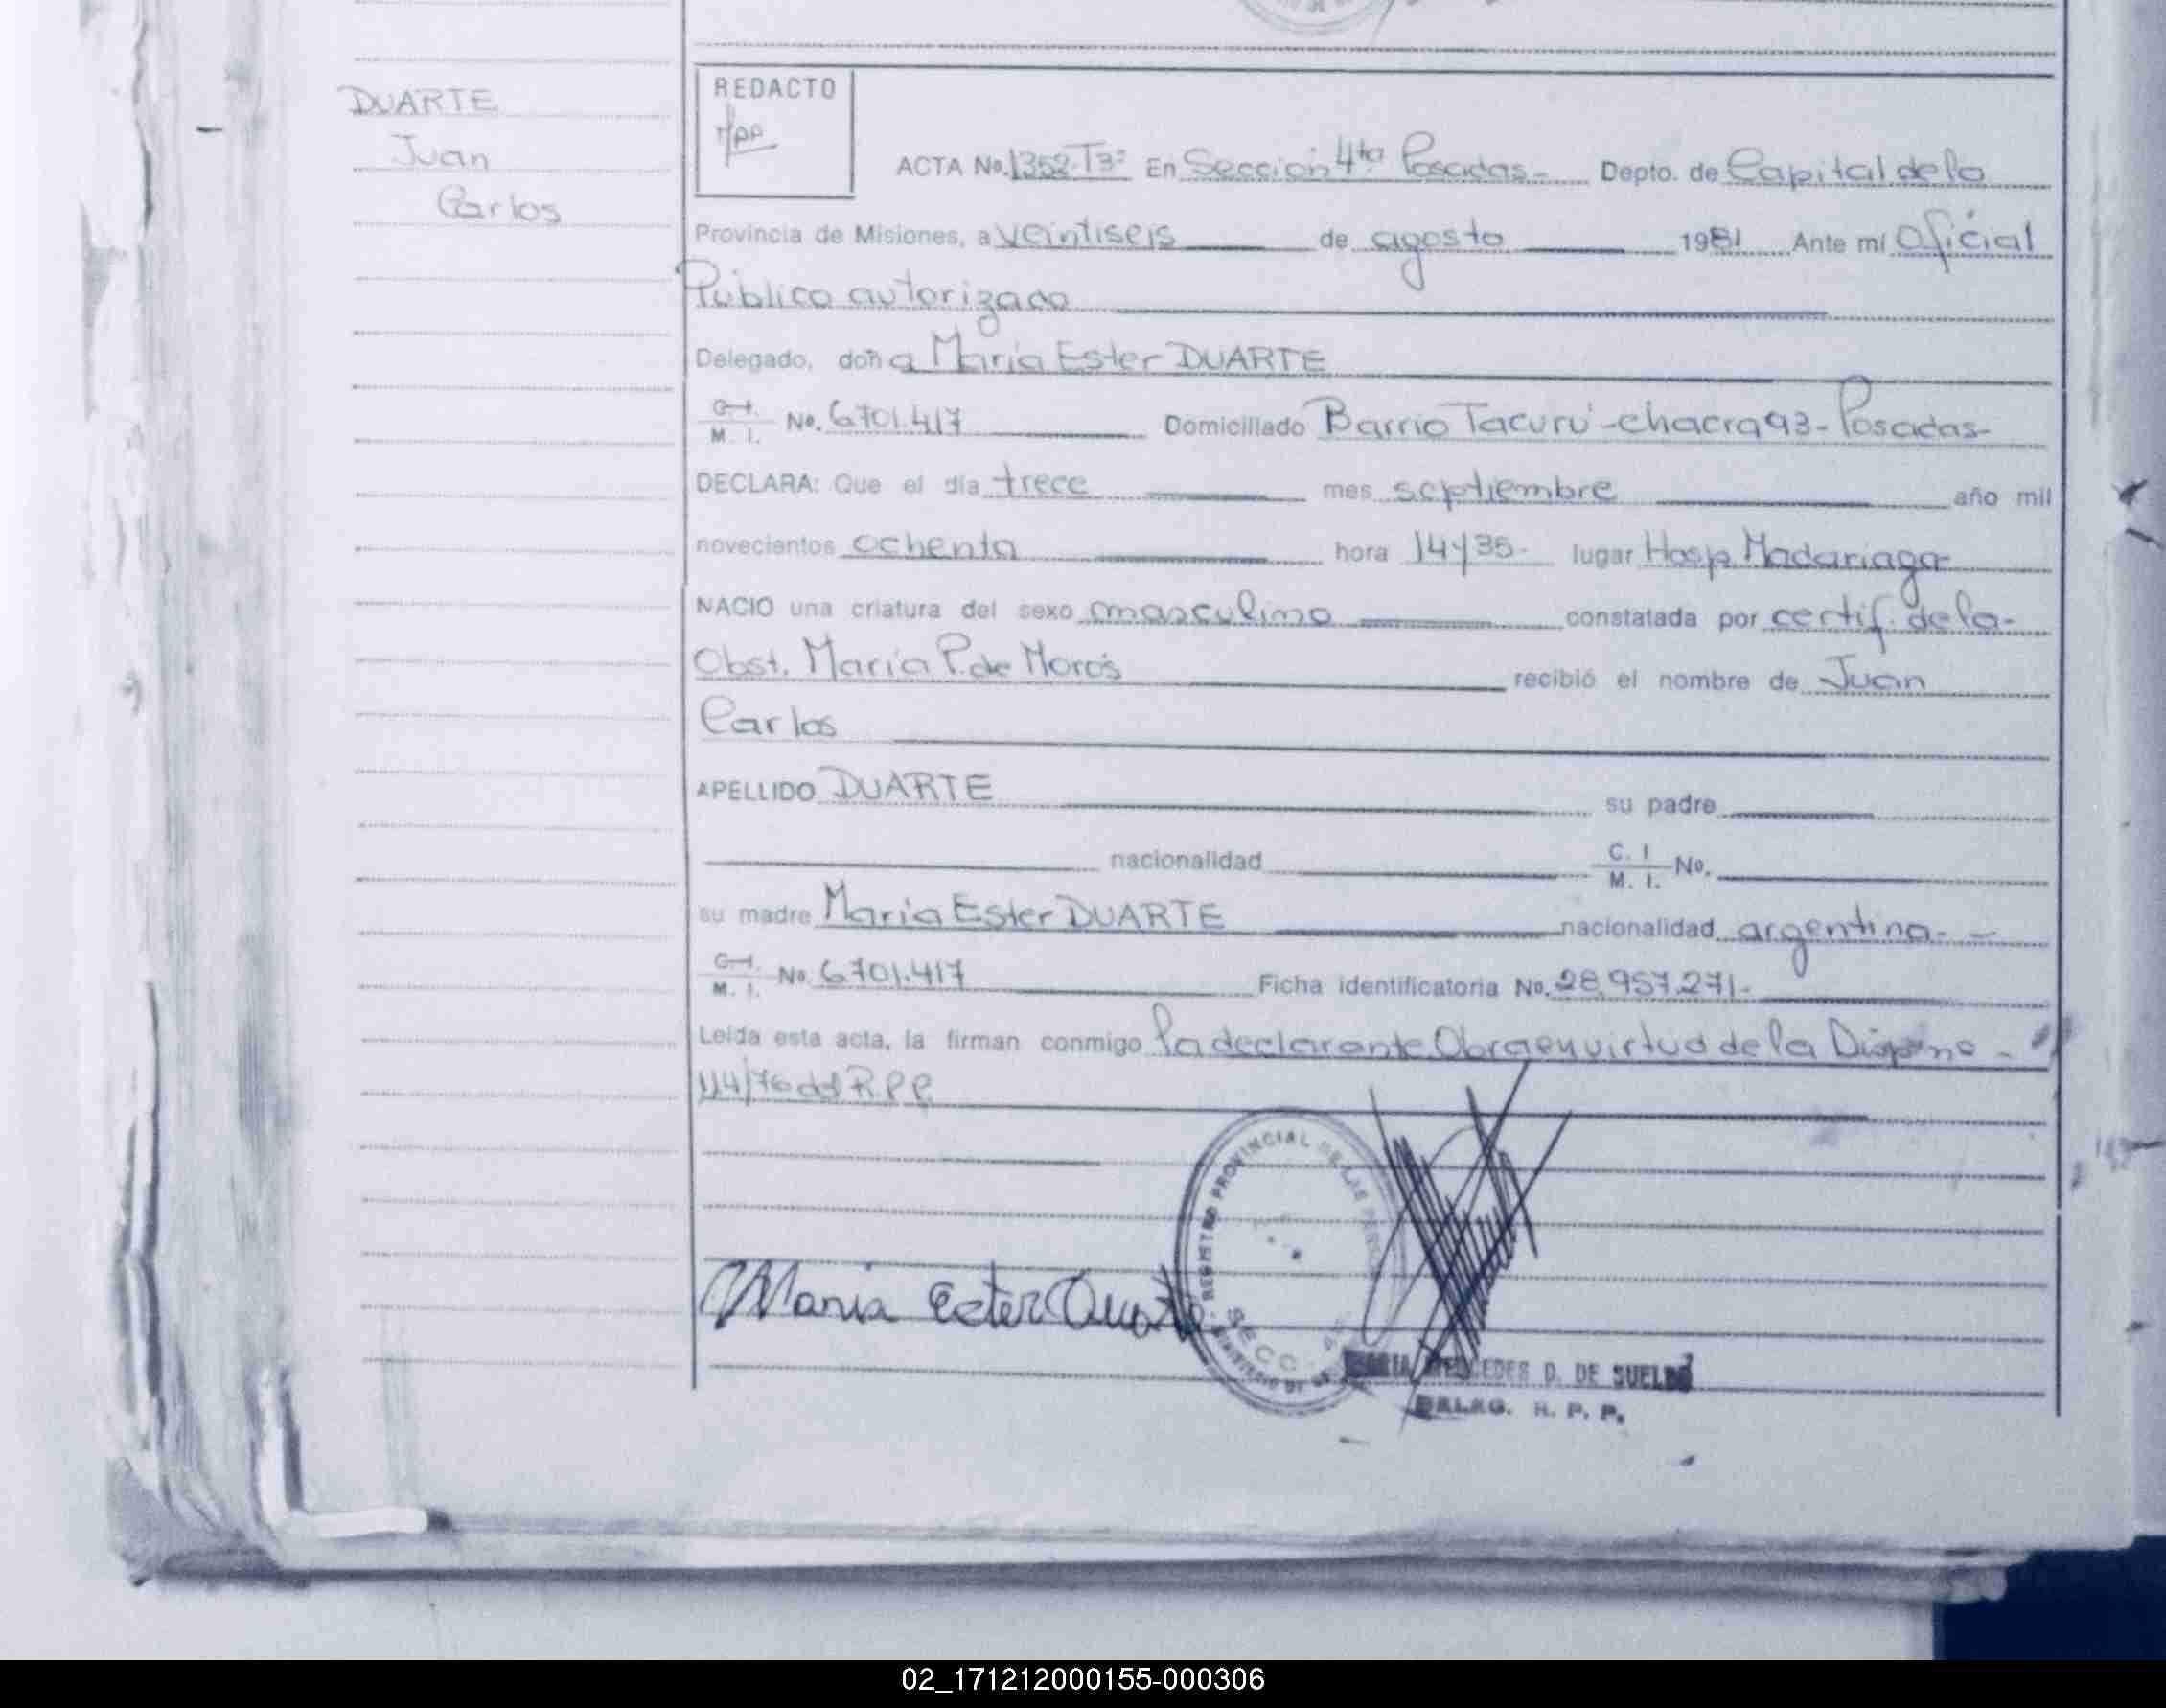 DUARTE
Juan
Carlos
REDACTO
ACTA No. 1352-T3º En Sección 4ta. Posadas- Depto. de Capital de la
Provincia de Misiones, a veintiseis de agosto 1981 Ante mí Oficial
Público autorizado
Delegado, doña María Ester DUARTE
C.I. M. I. No. 6.701.417 Domiciliado Barrio Tacurú-chacra 93-Posadas-
DECLARA: Que el día trece mes septiembre año mil
novecientos ochenta hora 14y35- lugar Hosp Madariaga-
NACIO una criatura del sexo masculino constatada por certif. de la-
Obst. María P. de Moros recibió el nombre de Juan
Carlos
APELLIDO DUARTE su padre
nacionalidad C. I M. I. No.
su madre María Ester DUARTE nacionalidad argentina-
C.I. M. I. No 6.701.417 Ficha identificatoria No. 28.957.271-
Leída esta acta, la firman conmigo la declarante. Obra en virtud de la
114/76 del R.P.P.
Maria Ester Duarte
REGISTRO PROVINCIAL DE LAS
SECC
MINISTERIO DE
MARIA MERCEDES D. DE SUELDO
DELEG. R. P. P.
02_171212000155-000306